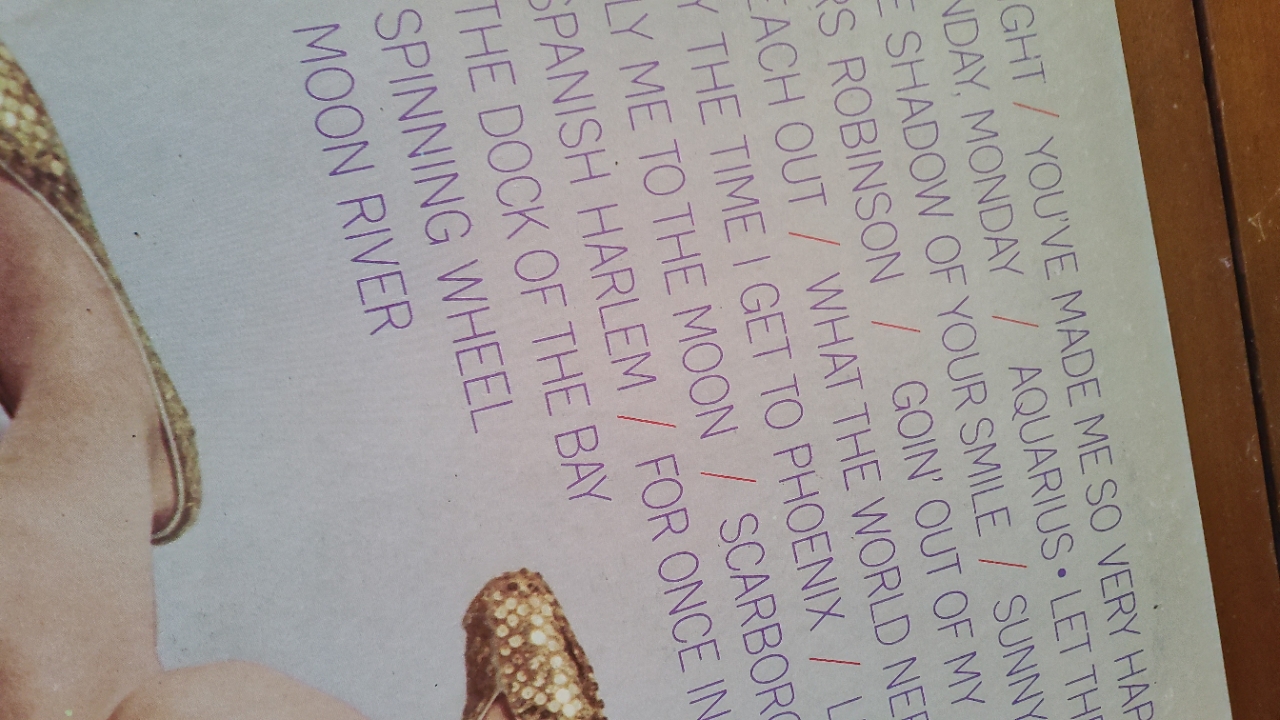 IGHT / YOU'VE MADE ME SO VERY HAP
NDAY, MONDAY / AQUARIUS • LET THE
E SHADOW OF YOUR SMILE / SUNNY
RS ROBINSON / GOIN' OUT OF MY
EACH OUT / WHAT THE WORLD NEE
Y THE TIME I GET TO PHOENIX / L
LY ME TO THE MOON / SCARBORO
SPANISH HARLEM / FOR ONCE IN
THE DOCK OF THE BAY
SPINNING WHEEL
MOON RIVER